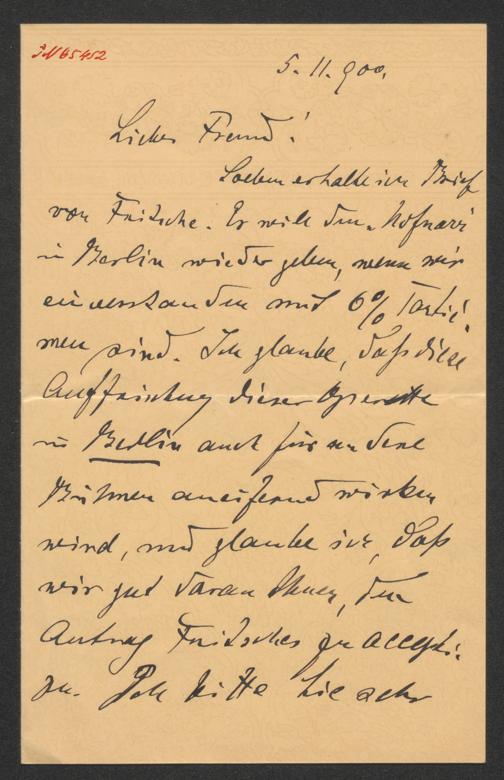 I.N 65452
5. 11. 900.
Lieber Freund!
Soeben erhalte ich Brief
von Fritzsche. Er will den „Hofnarr"
in Berlin wieder geben, wenn wir
einverstanden mit 6% Tantié-
men sind. Ich glaube, daß diese
Auffrischung dieser Operette
in Berlin auch für andere
Bühnen aneifernd wirken
wird, und glaube ich, daß
wir gut daran thuen, den
Antrag Fritzsches zu accepti-
ren. Ich bitte Sie sehr